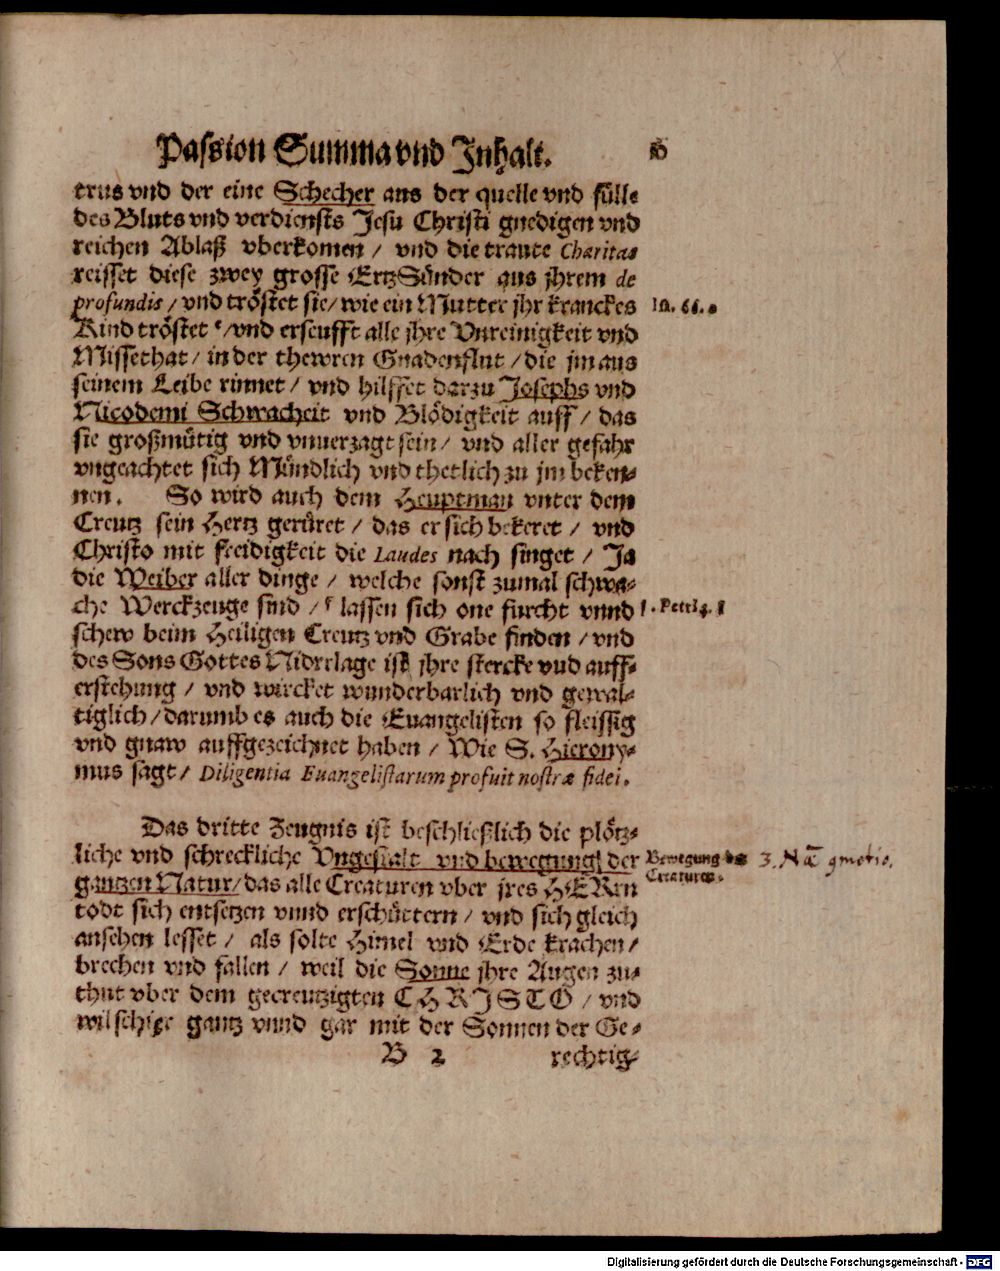 Passion Summa vnd Jnhalt.
trus vnd der eine Schecher aus der quelle vnd fülle
des Bluts vnd verdiensts Jesu Christi gnedigen vnd
reichen Ablaß vberkomen / vnd die traute Charitas
reisset diese zwey grosse ErtzSünder aus jhrem de
profundis / vnd tröstet sie / wie ein Mutter jhr kranckes
Isa. 66. e
Kind tröstet e / vnd erseufft alle jhre Vnreinigkeit vnd
Missethat / in der thewren Gnadenflut / die jm aus
seinem Leibe rinnet / vnd hilffet darzu Josephs vnd
Nicodemi Schwacheit vnd Blödigkeit auff / das
sie großmütig vnd vnuerzagt sein / vnd aller gefahr
vngeachtet sich Mündlich vnd thetlich zu jm beken-
nen. So wird auch dem Heuptman vnter dem
Creutz sein Hertz gerüret / das er sich bekeret / vnd
Christo mit freidigkeit die Laudes nach singet / Ja
die Weiber aller dinge / welche sonst zumal schwa-
che Werckzeuge sind / f lassen sich one furcht vnnd
1. Petri 3. f
schew beim Heiligen Creutz vnd Grabe finden / vnd
des Sons Gottes Nidrrlage ist jhre stercke vnd auff-
erstehung / vnd wircket wunderbarlich vnd gewal-
tiglich / darumb es auch die Euangelisten so fleissig
vnd gnaw auffgezeichnet haben / Wie S. Hierony-
mus sagt / Diligentia Euangelistarum profuit nostræ fidei.
Das dritte Zeugnis ist beschließlich die plötz-
liche vnd schreckliche Vngestalt vnd bewegung der
Bewegung der
Creaturen.
gantzen Natur / das alle Creaturen vber jres HERrn
todt sich entsetzen vnnd erschüttern / vnd sich gleich
ansehen lesset / als solte Himel vnd Erde krachen /
brechen vnd fallen / weil die Sonne jhre Augen zu-
thut vber dem gecreutzigten CHRISTO / vnd
wil schier gantz vnnd gar mit der Sonnen der Ge-
B 2 rechtig-
Digitalisierung gefördert durch die Deutsche Forschungsgemeinschaft - DFG